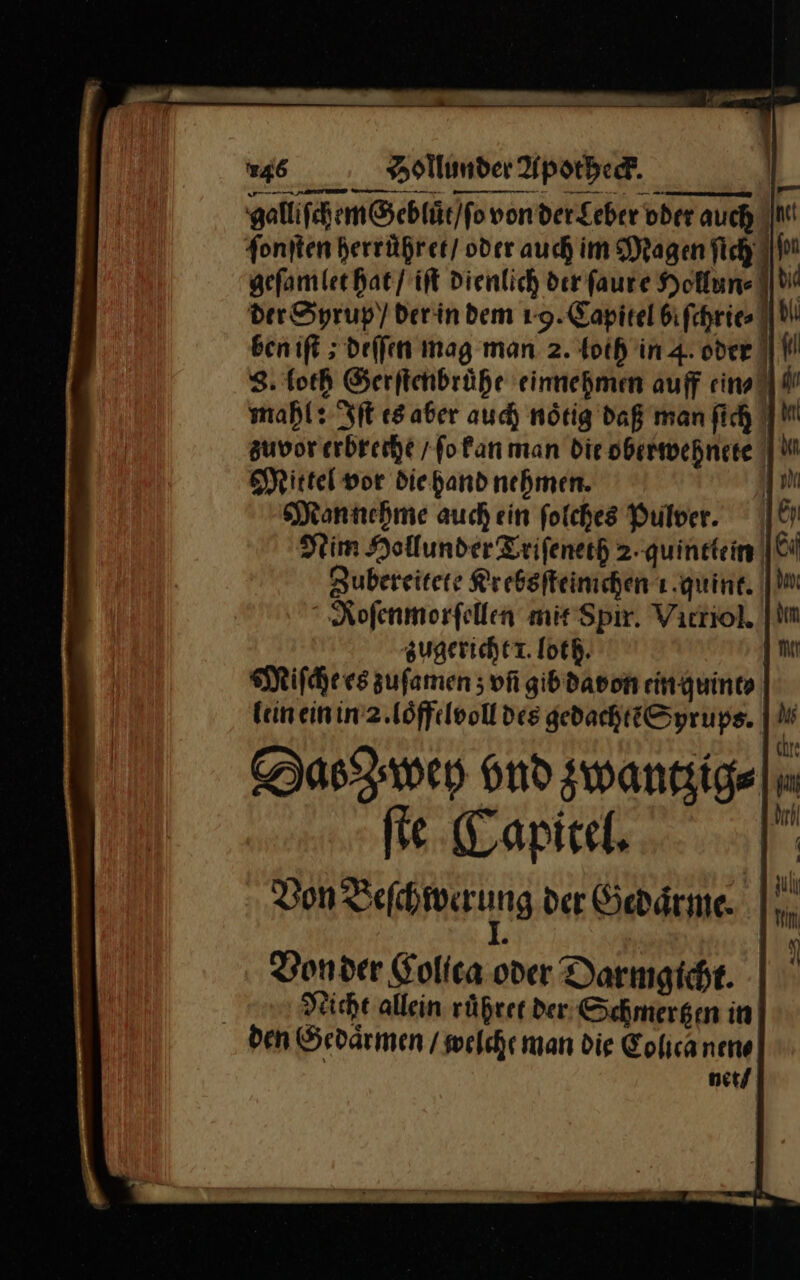 246 Hollunder Apotheck.
gallischem Geblüt/so von der Leber oder auch
sonsten herrühret/ oder auch im Magen sich
gesamlet hat/ ist dienlich der saure Hollun-
der Syrup/ der in dem 19. Capitel beschrie-
ben ist; dessen mag man 2. loth in 4. oder
3. loth Gerstenbrühe einnehmen auff ein-
mahl: Ist es aber auch nötig daß man sich
zuvor erbreche / so kan man die oberwehnete
Mittel vor die hand nehmen.
Man nehme auch ein solches Pulver.
Nim Hollunder Triseneth 2. quintlein
Zubereitete Krebssteinichen 1. quint.
Rosenmorsellen mit Spir. Vitriol.
zugericht 1. loth.
Mische es zusamen; vñ gib davon ein quint-
lein ein in 2. löffelvoll des gedachtē Syrups.
Das Zwey vnd zwantzig-
ste Capitel.
Von Beschwerung der Gedärme.
I.
Von der Colica oder Darmgicht.
Nicht allein rühret der Schmertzen in
den Gedärmen / welche man die Colica nen-
net/